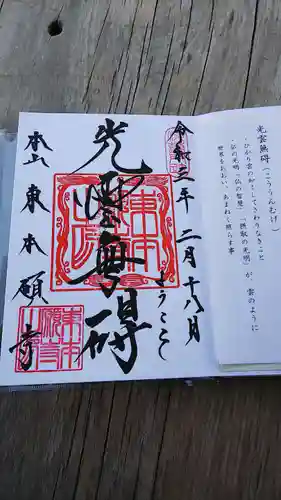 光雲無碍(こううんむげ)
・ひかり雲の如くしてさわりなきこと
・仏の光明「仏の智慧」「摂取の光明」が 雲のように
世界をおおい、あまねく照らす事
令和三年 二月十八日
ようこそ
光雲無碍
本山 東本願寺